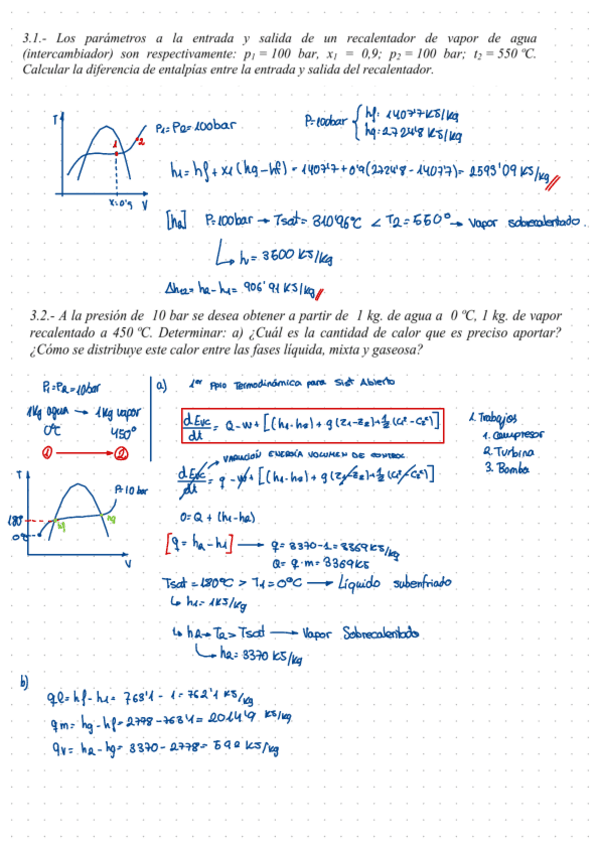 3.1.- Los parámetros a la entrada y salida de un recalentador de vapor de agua
(intercambiador) son respectivamente: p₁ = 100 bar, x₁ = 0,9; p₂ = 100 bar; t₂ = 550 ºC.
Calcular la diferencia de entalpías entre la entrada y salida del recalentador.
T
P₁=P₂=100bar
1
2
x=0'9
V
P=100bar { hf= 1407'7 KJ/kg
hg=2724'8 KJ/kg
h₁= hf + x₁(hg-hf) = 1407'7+0'9(2724'8-1407'7)= 2593'09 KJ/kg
[h₂] P=100bar → Tsat= 310'96ºC < T₂=550º → Vapor sobrecalentado.
h= 3500 KJ/kg
Δh₁₂= h₂-h₁= 906'91 KJ/kg
3.2.- A la presión de 10 bar se desea obtener a partir de 1 kg. de agua a 0 ºC, 1 kg. de vapor
recalentado a 450 ºC. Determinar: a) ¿Cuál es la cantidad de calor que es preciso aportar?
¿Cómo se distribuye este calor entre las fases líquida, mixta y gaseosa?
P₁=P₂=10bar
1Kg agua → 1Kg vapor
0ºC 450º
① → ②
T
P=10 bar
180º
0ºC
hf
hg
V
a) 1er Ppio Termodinámica para Sist Abierto
dEvc/dt = Q - W + [(h₁-h₂) + g(z₁-z₂)+½(c₁²-c₂²)]
VARIACIÓN ENERGÍA VOLUMEN DE CONTROL
dEvc/dt = q - W + [(h₁-h₂) + g(z₁-z₂)+½(c₁²-c₂²)]
Trabajos
1. Compresor
2. Turbina
3. Bomba
0= Q + (h₁-h₂)
[q= h₂-h₁] → q= 3370-1=3369 KJ/kg
Q= q·m= 3369KJ
Tsat=180ºC > T₁=0ºC → Líquido subenfriado
↳ h₁= 1KJ/kg
↳ h₂→T₂>Tsat → Vapor Sobrecalentado
↳ h₂= 3370 KJ/kg
b)
ql= hf-h₁= 763'1 - 1= 762'1 KJ/kg
qm= hg-hf= 2778-763'1= 2014'9 KJ/kg
qv= h₂-hg= 3370-2778= 592 KJ/kg